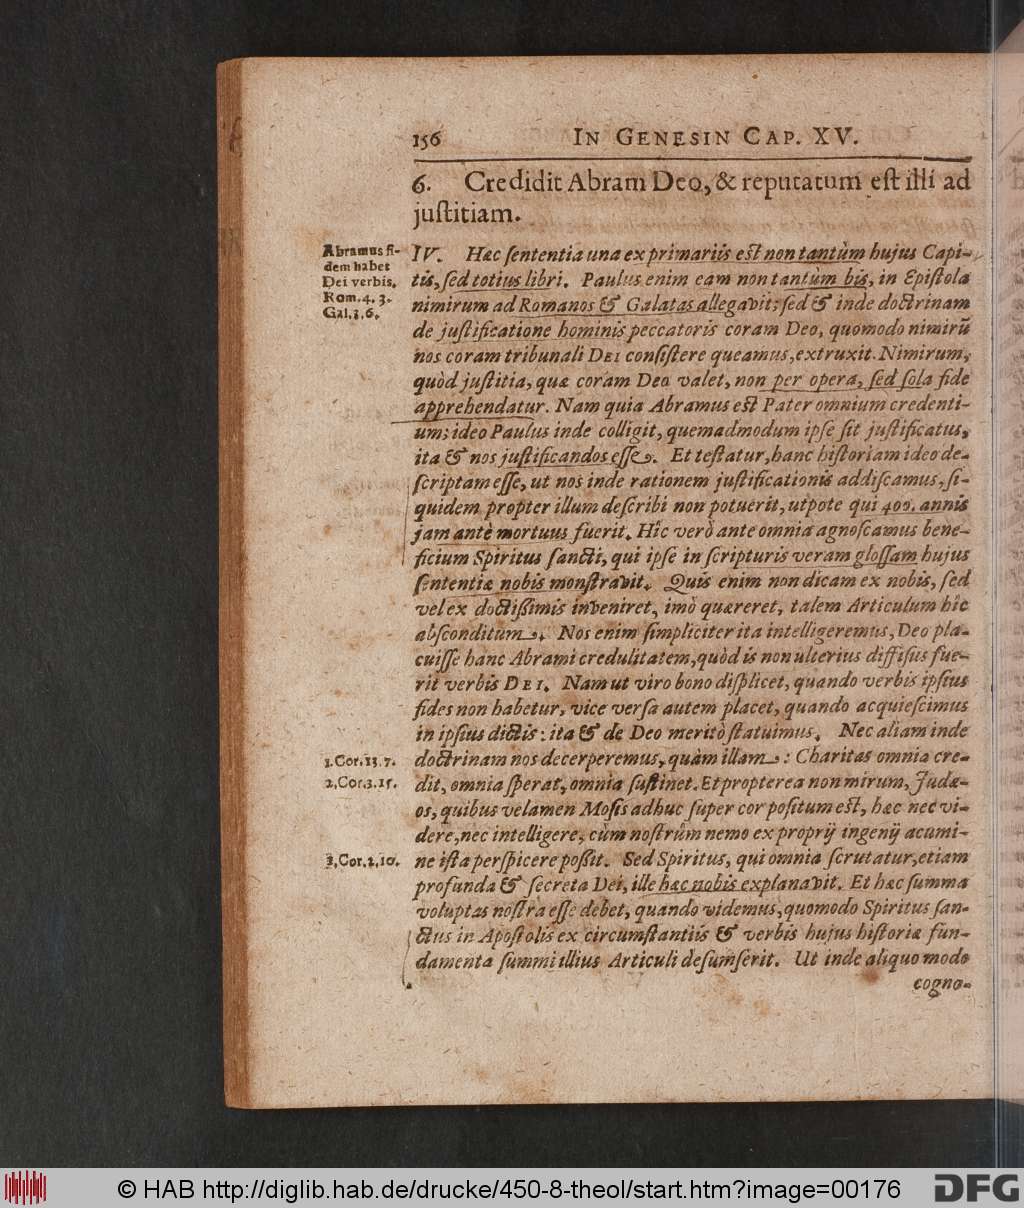 156 IN GENESIN CAP. XV.
6. Credidit Abram Deo, & reputatum est illi ad
justitiam.
Abramus fi-
dem habet
Dei verbis.
Rom. 4. 3.
Gal. 3. 6.
IV. Hæc sententia una ex primariis est non tantùm hujus Capi-
tis, sed totius libri. Paulus enim eam non tantùm bis, in Epistola
nimirum ad Romanos & Galatas allegavit: sed & inde doctrinam
de justificatione hominis peccatoris coram Deo, quomodo nimirũ
nos coram tribunali DEI consistere queamus, extruxit. Nimirum,
quòd justitia, quæ coram Deo valet, non per opera, sed sola fide
apprehendatur. Nam quia Abramus est Pater omnium credenti-
um; ideo Paulus inde colligit, quemadmodum ipse sit justificatus,
ita & nos justificandos esse. Et testatur, hanc historiam ideo de-
scriptam esse, ut nos inde rationem justificationis addiscamus, si-
quidem propter illum describi non potuerit, utpote qui 400. annis
jam antè mortuus fuerit. Hîc verò ante omnia agnoscamus bene-
ficium Spiritus sancti, qui ipse in scripturis veram glossam hujus
sententiæ nobis monstravit. Quis enim non dicam ex nobis, sed
vel ex doctissimis inveniret, imò quæreret, talem Articulum hîc
absconditum. Nos enim simpliciter ita intelligeremus, Deo pla-
cuisse hanc Abrami credulitatem, quòd is non ulterius diffisus fue-
rit verbis DEI. Nam ut viro bono displicet, quando verbis ipsius
fides non habetur, vice versa autem placet, quando acquiescimus
in ipsius dictis: ita & de Deo meritò statuimus. Nec aliam inde
1. Cor. 13. 7.
doctrinam nos decerperemus, quàm illam: Charitas omnia cre-
2. Cor. 3. 15.
dit, omnia sperat, omnia sustinet. Et propterea non mirum, Judæ-
os, quibus velamen Mosis adhuc super cor positum est, hæc nec vi-
dere, nec intelligere, cùm nostrûm nemo ex proprij ingenij acumi-
1. Cor. 2. 10.
ne ista perspicere possit. Sed Spiritus, qui omnia scrutatur, etiam
profunda & secreta Dei, ille hæc nobis explanavit. Et hæc summa
voluptas nostra esse debet, quando videmus, quomodo Spiritus san-
ctus in Apostolis ex circumstantiis & verbis hujus historiæ fun-
damenta summi illius Articuli desumserit. Ut inde aliquo modo
cogno-
© HAB http://diglib.hab.de/drucke/450-8-theol/start.htm?image=00176
DFG